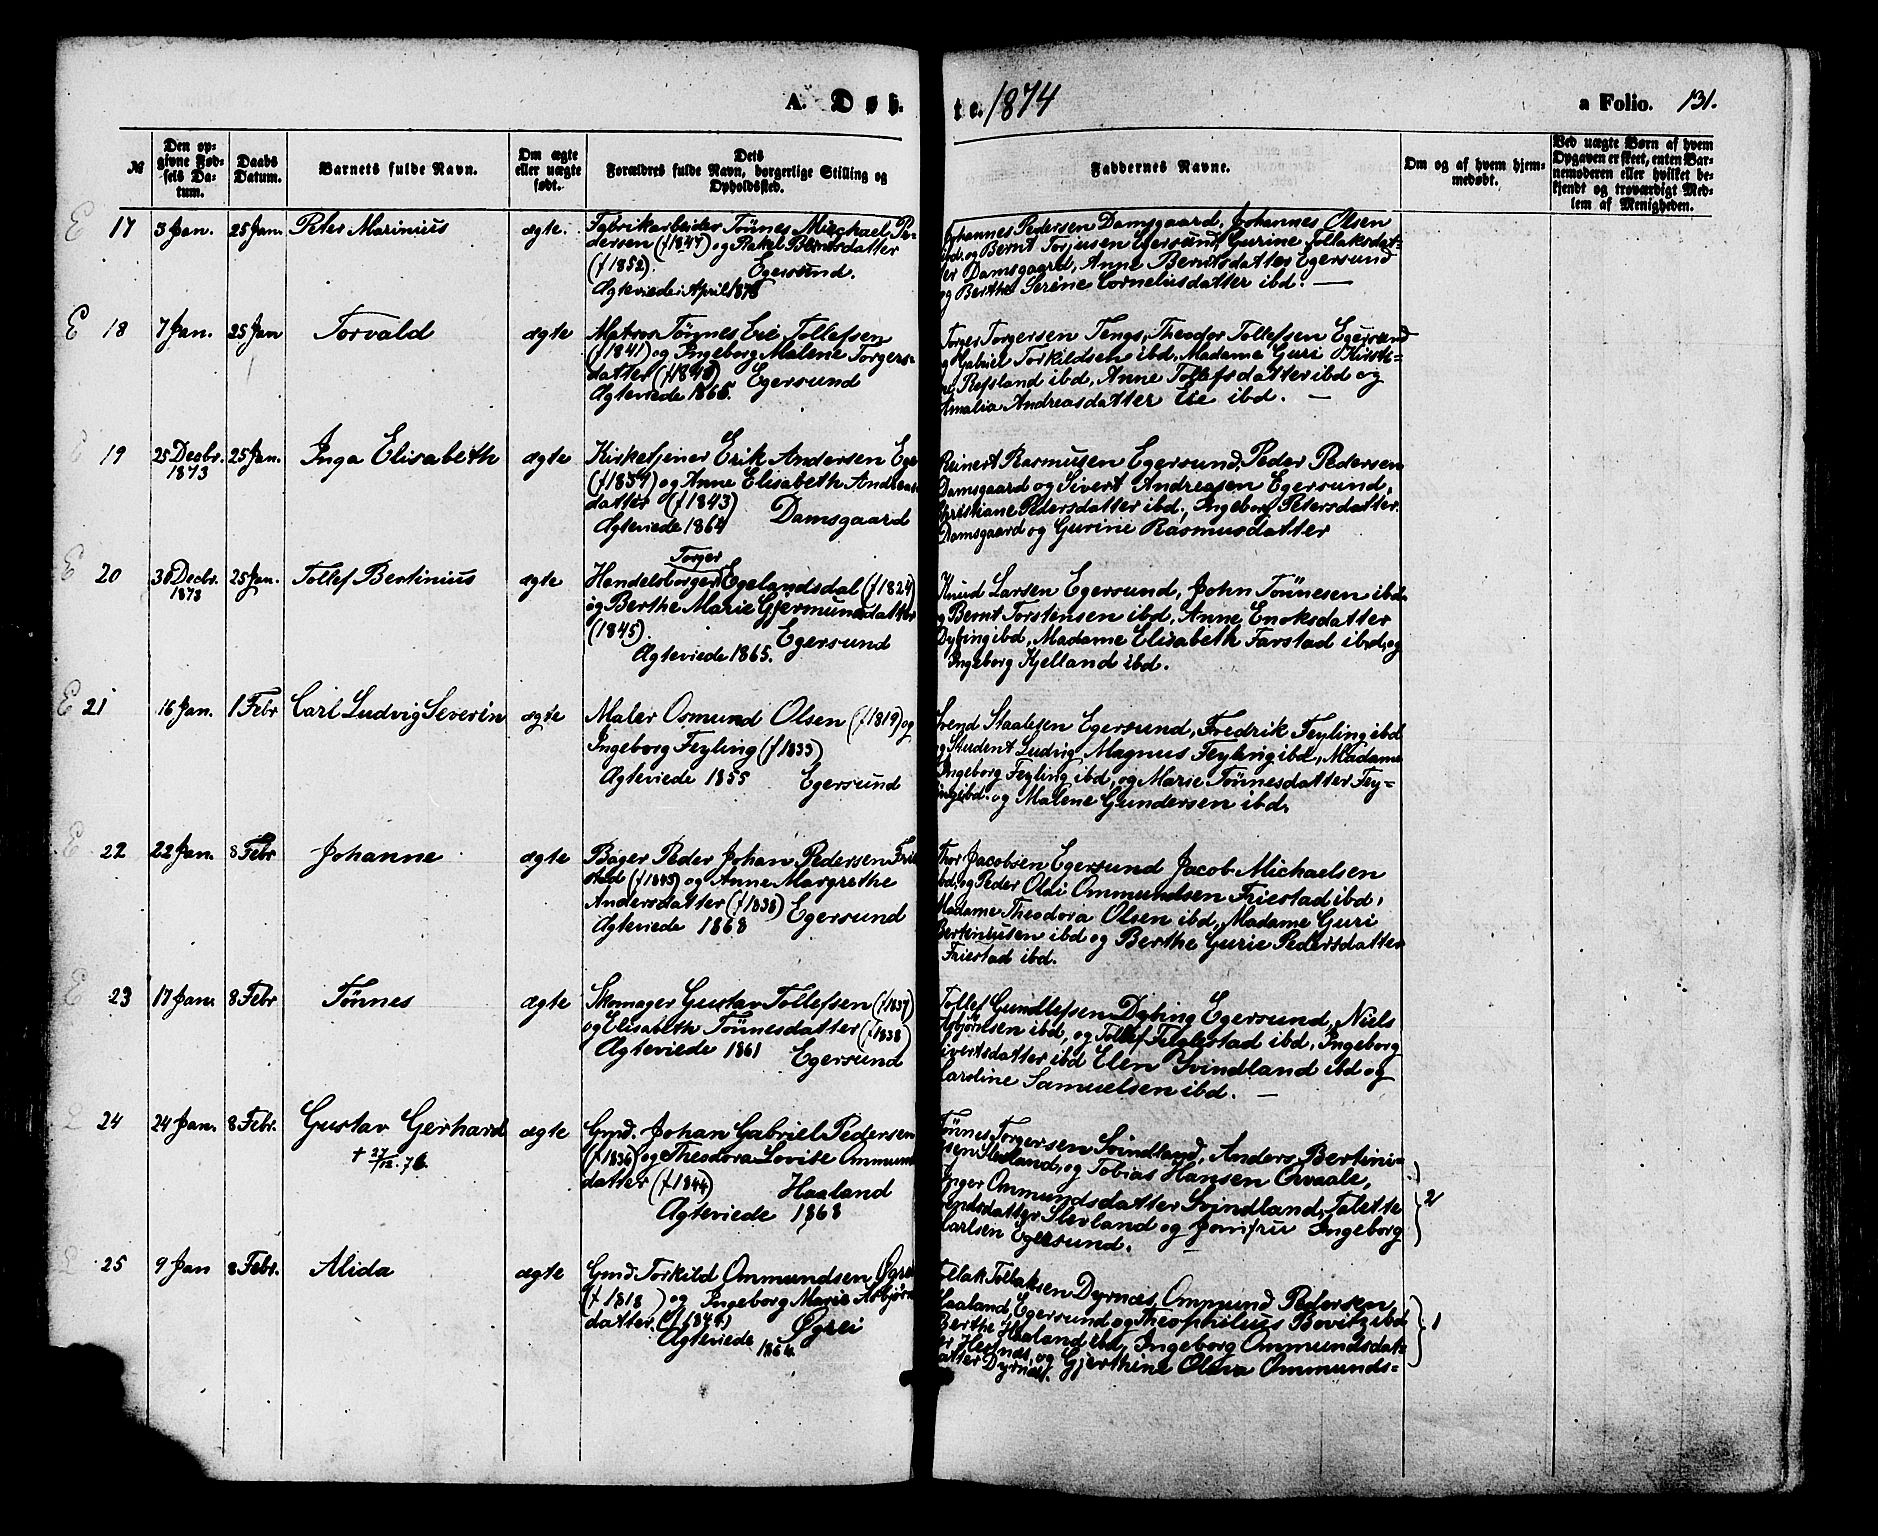 A. Døb-
te. 1874
a Folio. 131.
№
Den op-
givne Fød-
sels Da-
tum.
Daabs
Datum.
Barnets fulde Navn.
Om ægte
eller uægte
født.
Dets
Forældres fulde Navn, borgerlige Stilling og
Opholdssted.
Faddernes Navne.
Om og af hvem hjem-
medøbt.
Ved uægte Børn af hvem
Opgaven er skeet, enten Bar-
nemoderen eller hvilket be-
kjendt og troværdigt Med-
lem af Menigheden.
E 17 3 Jan. 25 Jan. Peter Marinius ægte.
Fabrikarbeider Tönnes Michael Pe-
dersen (f 1847) og Rakel Berntsdatter
(f 1852). Egersund.
Ægteviede i April 1873
Johannes Pedersen Damsgaard, Johannes Olsen
ibd. og Bernt Torjusen Egersund, Gurine Tollaksdat-
ter Damsgaard, Anne Berntsdatter Egersund
og Berthe Serine Corneliusdatter ibd. —
E 18 7 Jan. 25 Jan Torvald ægte
Matros Tönnes Eie Tollefsen
(f 1841) og Ingeborg Malene Torgers-
datter (f 1840) Egersund
Ægteviede 1866.
Torger Torgersen Tengs, Theodor Tollefsen Egersund
og Gabriel Torkildsen ibd. Madame Guri Kirsti-
ne Refsland ibd, Anne Tollefsdatter ibd og
Amalia Andreasdatter Eie ibd. —
E 19 25 Decbr. 1873 25 Jan. Inga Elisabeth ægte
Kirketjener Erik Andersen Ege
(f 1837) og Anne Elisabeth Andreas-
datter (f 1843) Damsgaard
Ægteviede 1864
Reinert Rasmusen Egersund, Peder Pedersen
Damsgaard og Sivert Andreasen Egersund,
Christiane Pedersdatter ibd., Ingeborg Petersdatter
Damsgaard og Gurine Rasmusdatter
E 20 30 Decbr. 1873 25 Jan. Tollef Bertinius ægte
Torger
Handelsborger Egelandsdal (f 1824)
og Berthe Marie Gjermundsdatter
(1845). Egersund
Ægteviede 1865.
Knud Larsen Egersund, John Tönnesen ibd.
og Bernt Torstensen ibd, Anne Enoksdatter
Dybing ibd, Madame Elisabeth Farstad ibd, og
Ingeborg Kjelland ibd.
E 21 16 Jan. 1 Febr Carl Ludvig Severin ægte
Maler Osmund Olsen (f 1819) og
Ingeborg Feyling (f 1833)
Ægteviede 1855 Egersund
Svend Staalesen Egersund, Fredrik Feyling ibd
og Student Ludvig Magnus Feyling ibd, Madame
Ingeborg Feyling ibd, og Marie Tönnesdatter Fey-
ling ibd. og Malene Gundersen ibd.
E 22 22 Jan. 8 Febr Johanne ægte
Bager Peder Johan Pedersen Frie-
stad (f 1845) og Anne Margrethe
Andersdatter (f 1838) Egersund
Ægteviede 1868
Thor Jacobsen Egersund Jacob Michaelsen
ibd, og Peder Olai Ommundsen Friestad ibd,
Madame Theodora Olsen ibd, Madame Guri
Bertiniusen ibd og Berthe Gurie Pedersdatter
Friestad ibd.
E 23 17 Jan. 8 Febr Tönnes ægte
Skomager Gustav Tollefsen (f 1837)
og Elisabeth Tönnesdatter (f 1838)
Ægteviede 1861 Egersund
Tollef Gundlefsen Dybing Egersund, Niels
Asbjörnsen ibd, og Tollef Fuglestad ibd, Ingeborg
Sivertsdatter ibd Elen Svindland ibd og
Karoline Samuelsen ibd. —
24 24 Jan. 8 Febr. Gustav Gerhard ægte
+ 27/12. 76.
Gmd. Johan Gabriel Pedersen
(f 1836) og Theodora Lovise Ommunds-
datter (f 1844) Haaland
Ægteviede 1868
Tönnes Torgersen Svindland, Anders Bertini-
usen Sleveland, og Tobias Hansen Orvaale,
Inger Ommundsdatter Svindland, Talette
Sleveland og Jomfru Ingeborg
Carlsen Egersund.
2
25 9 Jan 8 Febr. Alida ægte
Gmd. Torkild Ommundsen Øgrei
(f 1818) og Ingeborg Marie Asbjörns-
datter. (f 1844) Øgrei
Ægteviede 1864.
Tollak Tollaksen Dyrnæs, Ommund Pedersen
Haaland, Egersund og Theophilius Bovitz ibd
Berthe Haaland ibd, Ingeborg Ommundsdat-
ter Hestnes, og Gjerthine Olava Ommunds-
datter Dyrnæs.
1